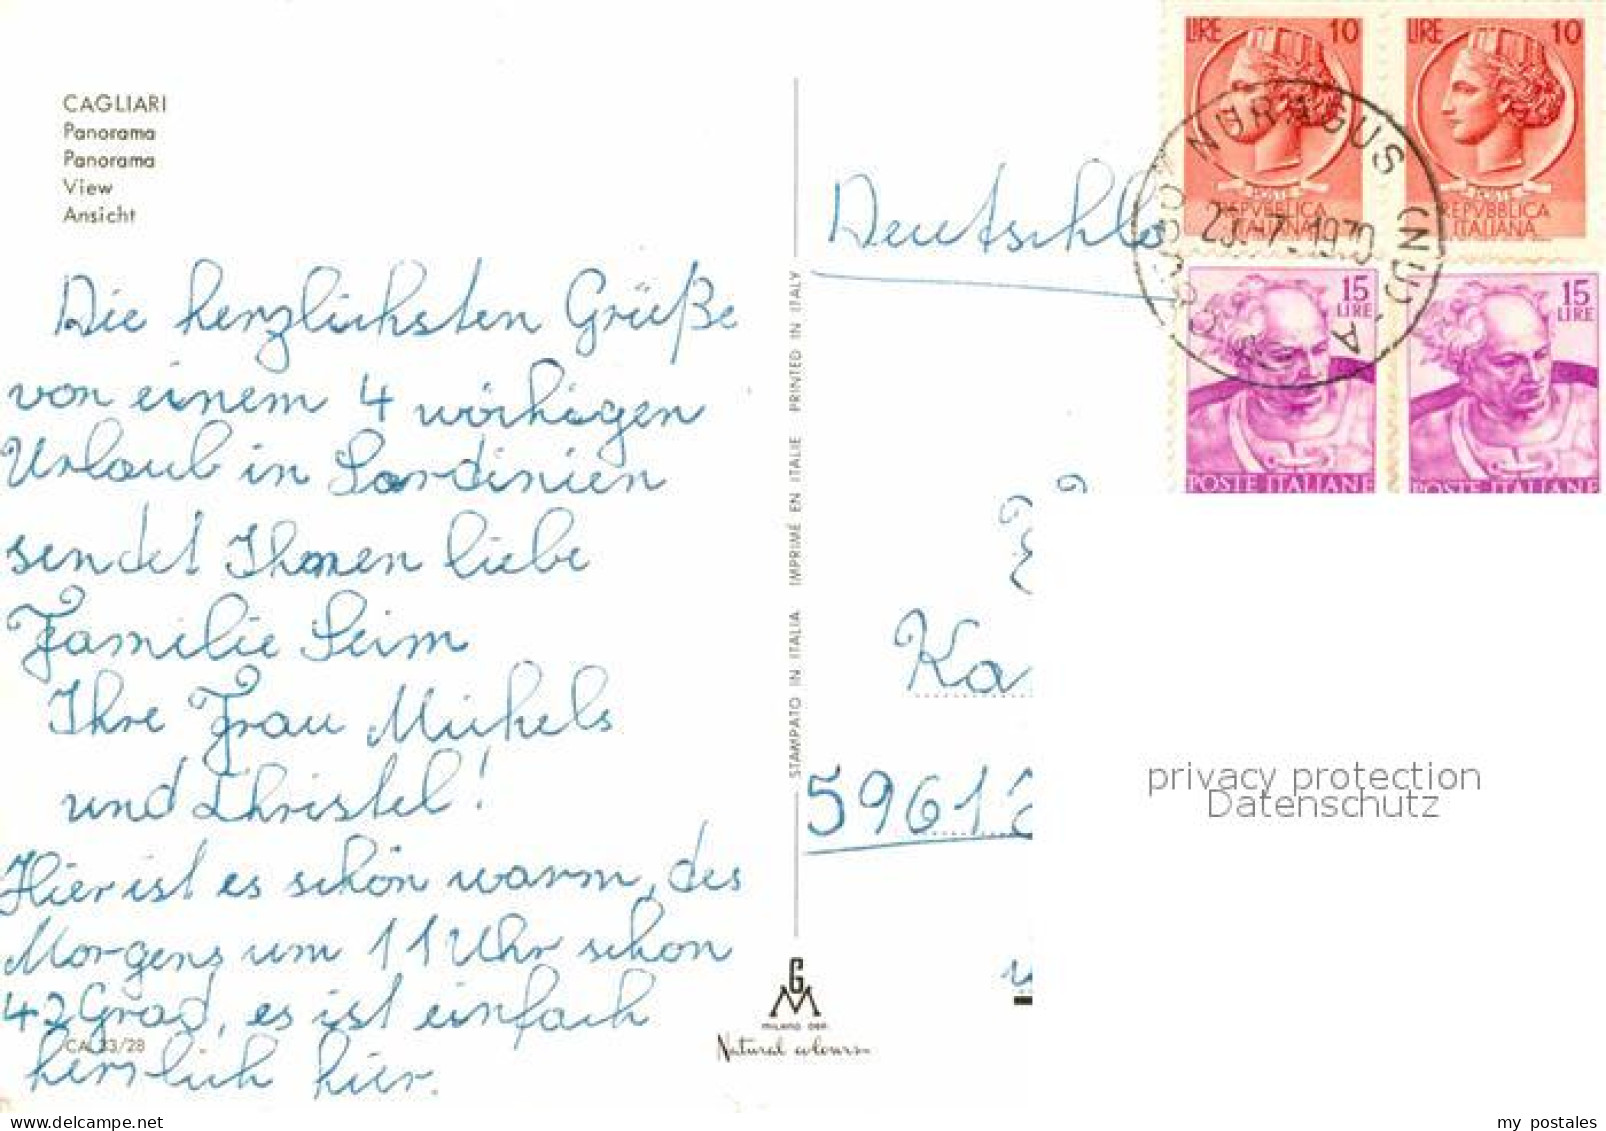 CAGLIARI
Panorama
Panorama
View
Ansicht
Die herzlichsten Grüße
von einem 4 wöchigen
Urlaub in Sardinien
sendet Ihnen liebe
Familie Seim
Ihre Frau Michels
und Christel!
Hier ist es schön warm, des
Morgens um 11 Uhr schon
42 Grad, es ist einfach
herrlich hier.
CA 33/28
STAMPATO IN ITALIA IMPRIMÉ EN ITALIE PRINTED IN ITALY
GM
MILANO DEP.
Natural colours
LIRE 10
POSTE
REPVBBLICA
ITALIANA
LIRE 10
POSTE
REPVBBLICA
ITALIANA
15
LIRE
POSTE ITALIANE
15
LIRE
POSTE ITALIANE
NURAGUS (NU)
-7.1970
Deutschla
Ka
5961
privacy protection
Datenschutz
my postales